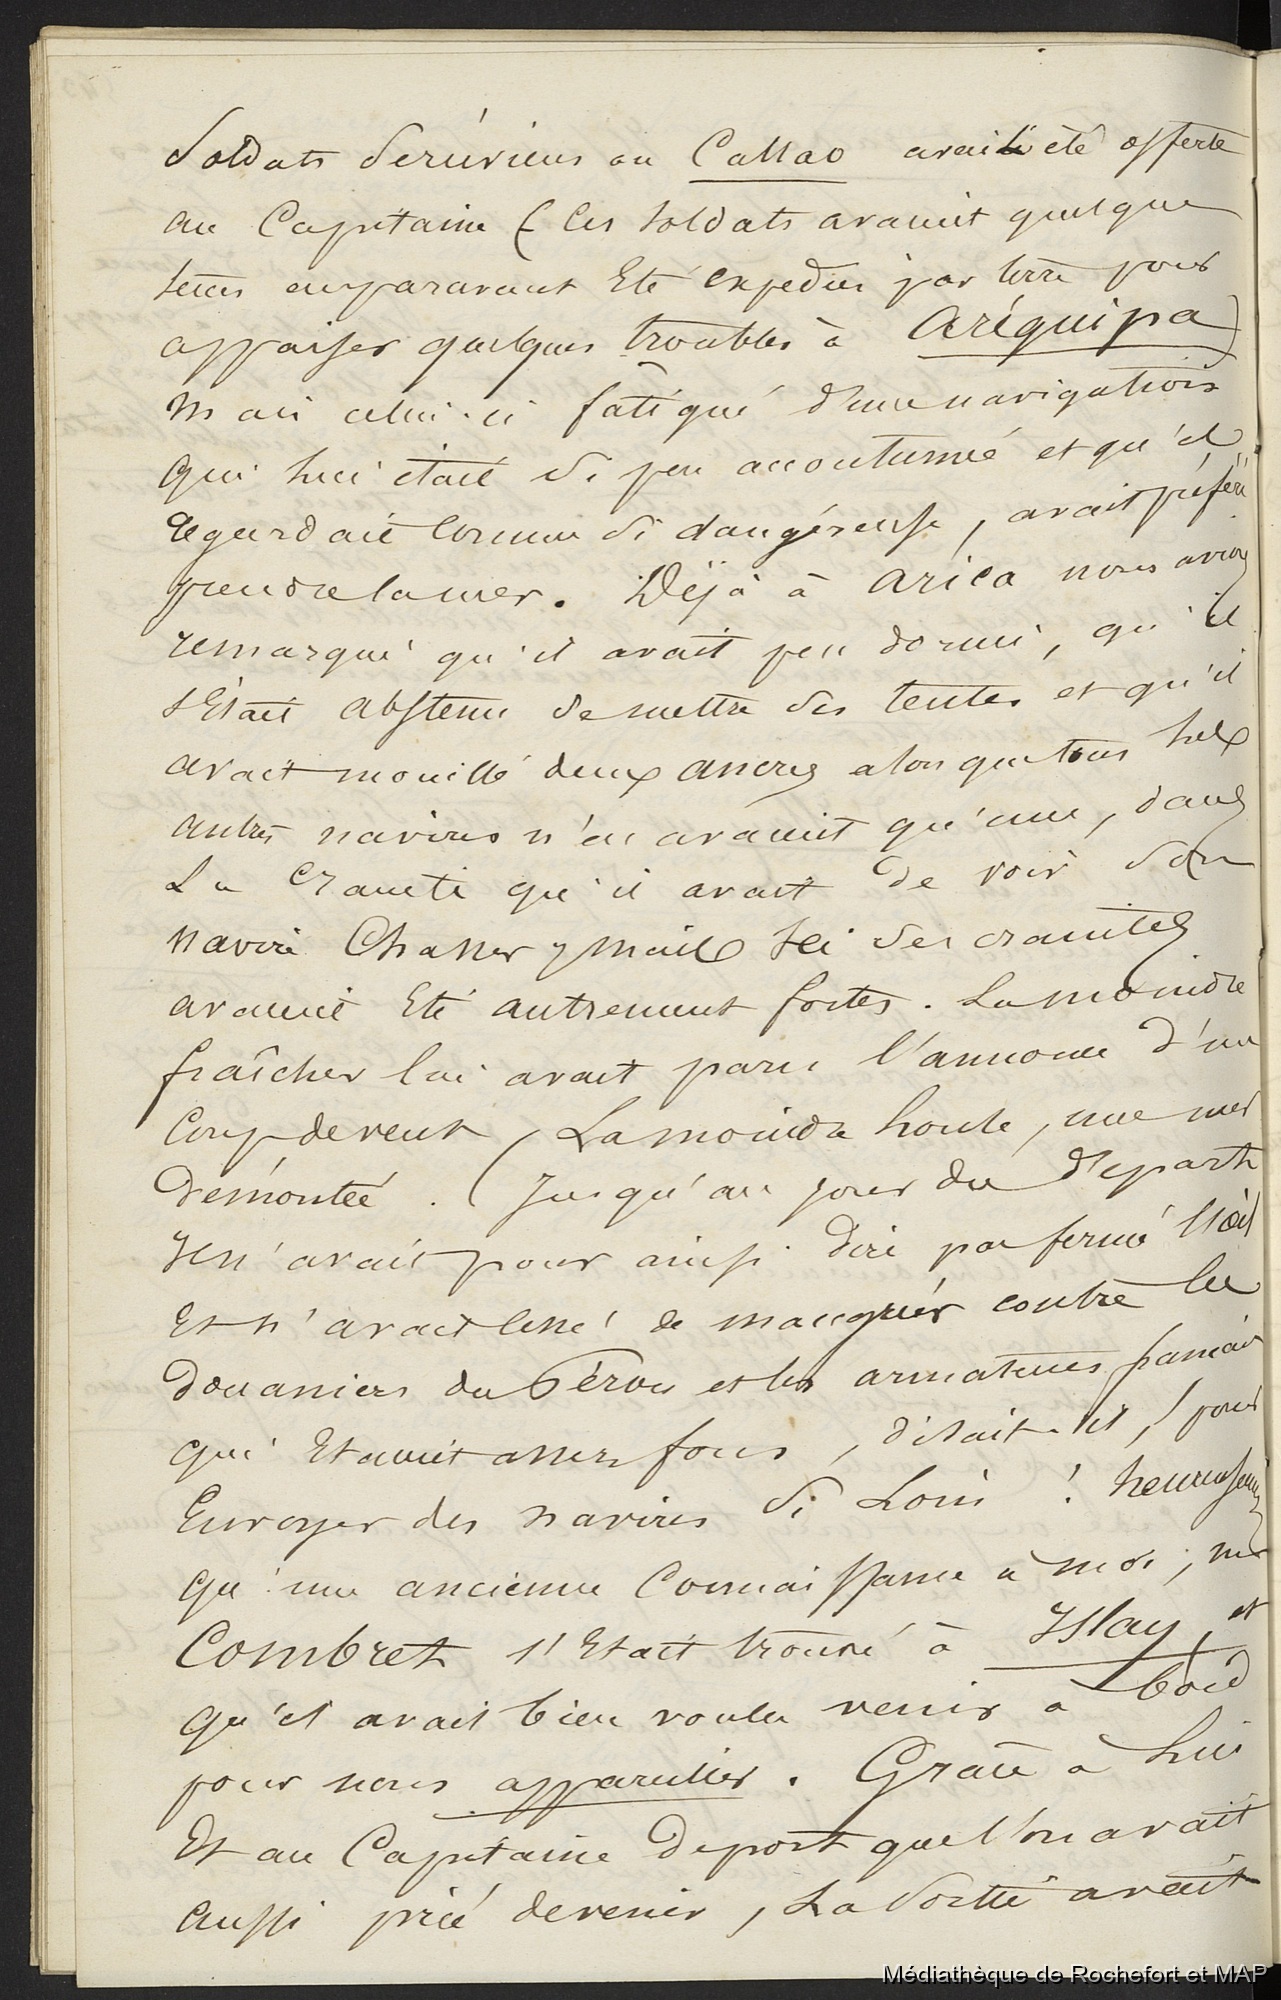 Soldats Péruviens au Callao avait été offerte
au Capitaine (les soldats avaient quelque
tems auparavant Eté expédiés par terre pour
appaiser quelques troubles à Aréquipa)
Mais celui-ci fatigué d'une navigation
qui lui était si peu accoutumée et qu'il
regardait comme si dangéreuse, avait préféré
prendre la mer. Déjà à Arica nous avions
remarqué qu'il avait peu dormi, qu'il
s'Etait abstenu de mettre des tentes et qu'il
avait mouillé deux ancres alors que tous les
autres navires n'en avaient qu'une, dans
la crainte qu'il avait de voir son
navire Chasser, mais ici ses craintes
avaient Eté autrement fortes. La moindre
fraîcheur lui avait paru l'annonce d'un
Coup de vent, La moindre houle, une mer
démontée. Jusqu'au jour du départ
il n'avait pour ainsi dire pas fermé l'œil
Et n'avait cessé de maugréer contre les
douaniers du Pérou et les armateurs français
qui Etaient assez fous, disait-il, pour
Envoyer des navires si Loin! heureusement
qu'une ancienne Connaissance à moi, mr
Combret s'Etait trouvé à Yslay, et
qu'il avait bien voulu venir à bord
pour nous appareiller. Grâce à lui
Et au Capitaine de port que l'on avait
aussi prié de venir, La Sortie avait
Médiathèque de Rochefort et MAP